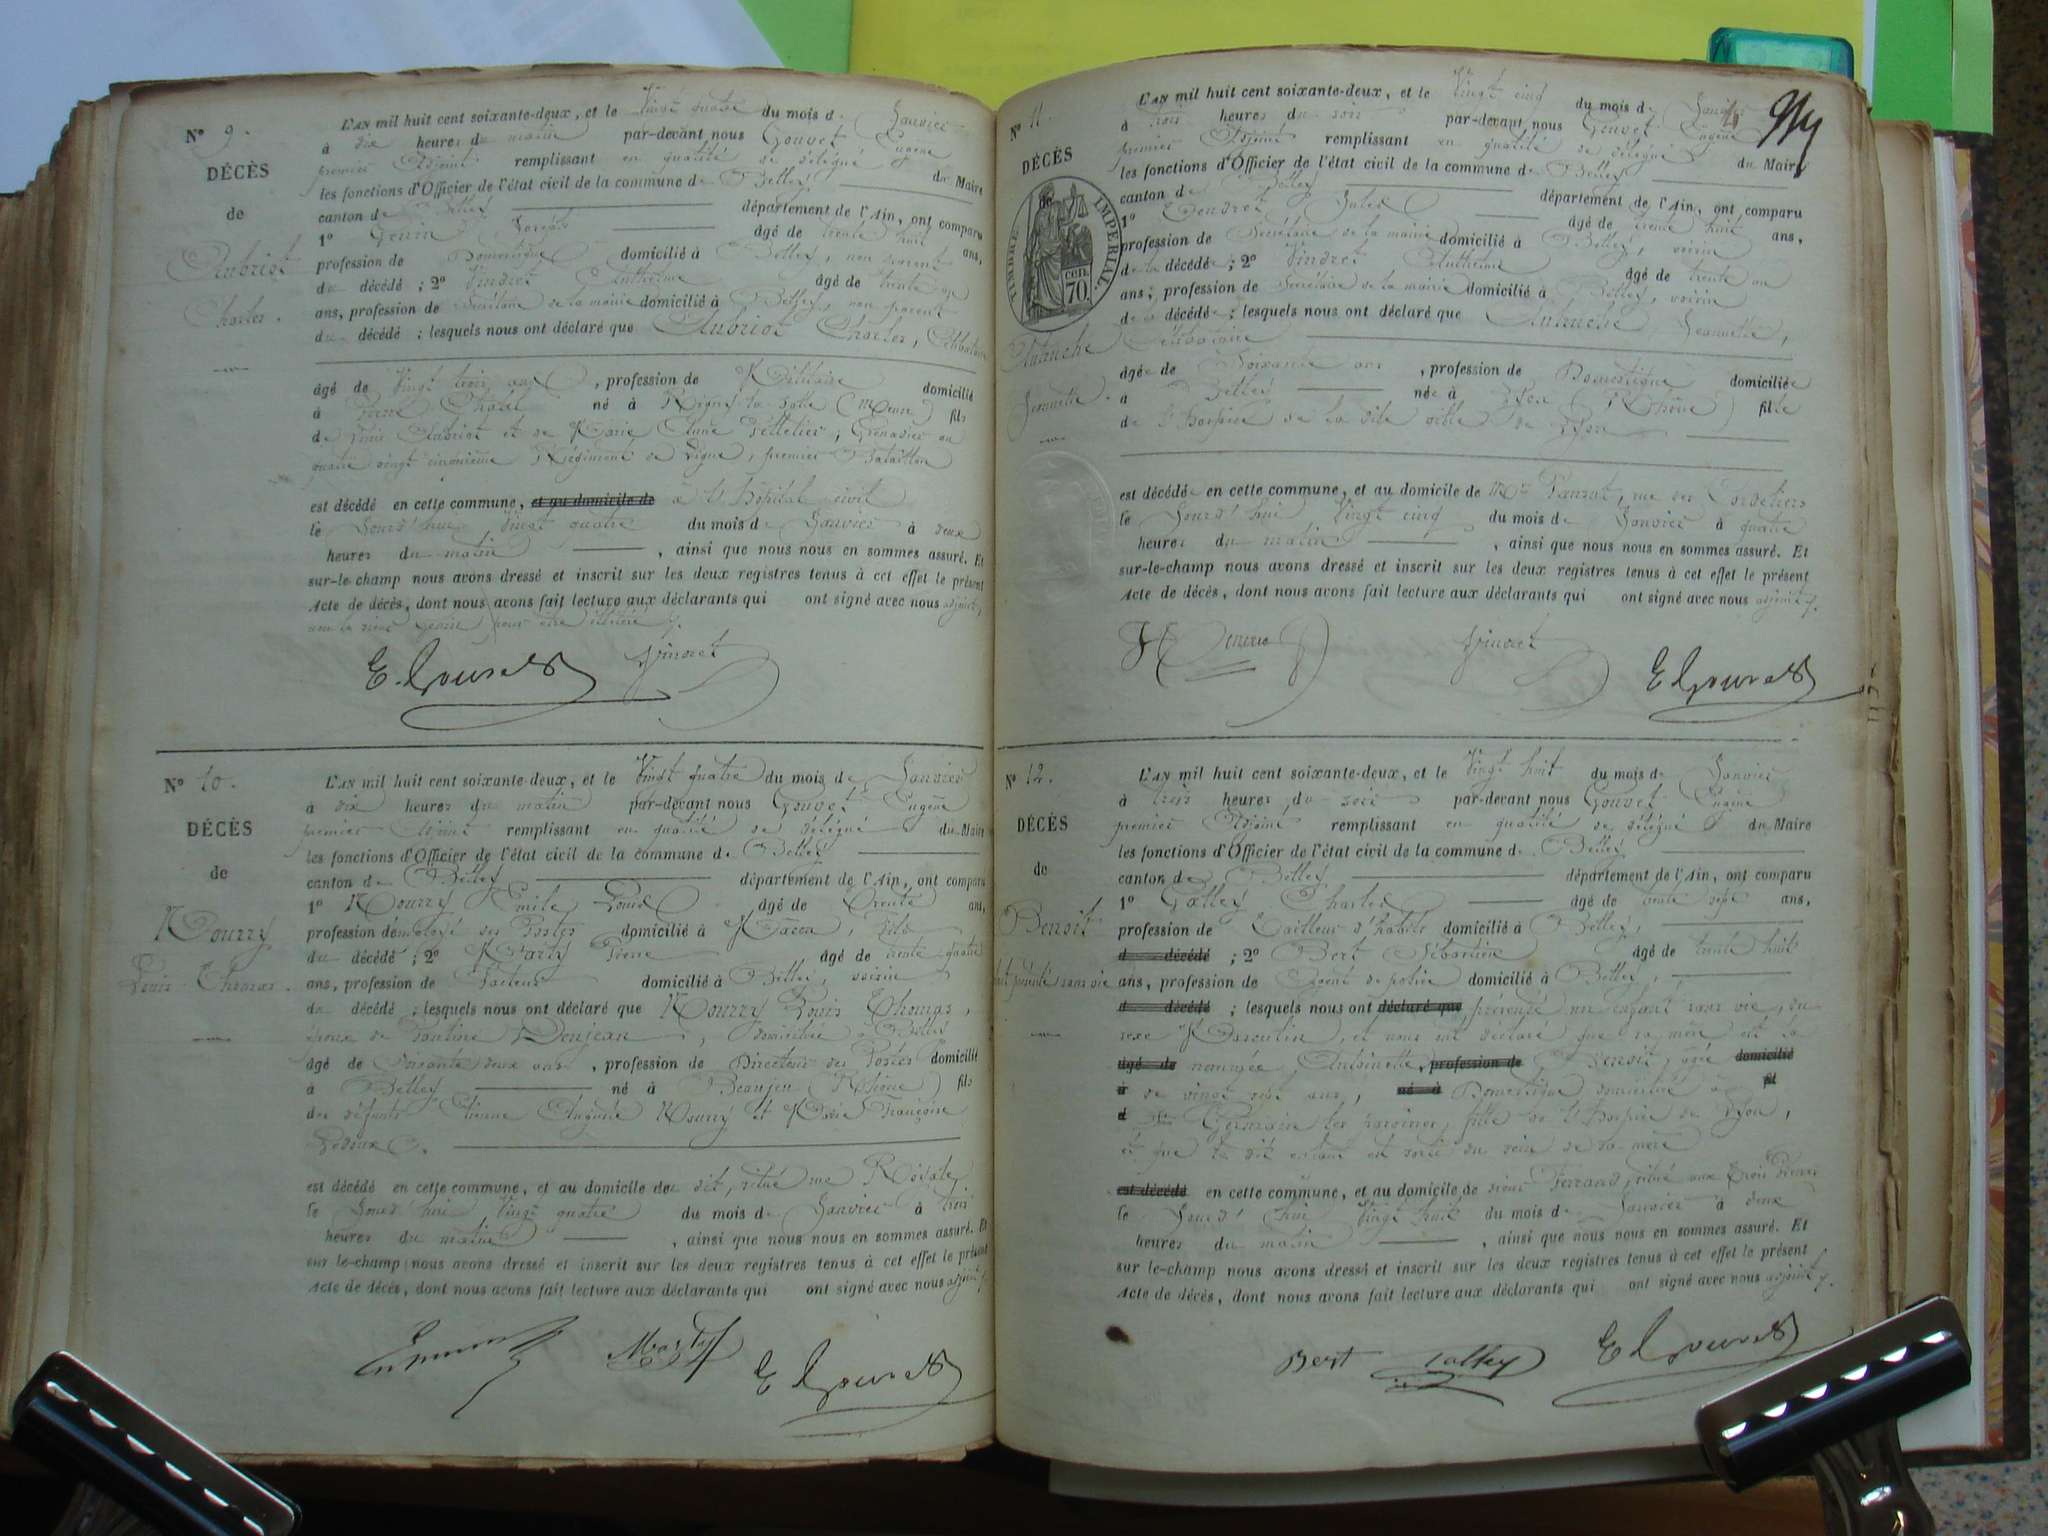 N° 9.
DÉCÈS
de
Aubriot
Charles.
L'AN mil huit cent soixante-deux, et le Vingt quatre du mois de Janvier
à dix heures du matin par-devant nous Gouvet Eugène
premier Adjoint remplissant en qualité de délégué du Maire
les fonctions d'Officier de l'état civil de la commune de Belley
canton de Belley département de l'Ain, ont comparu
1° Genin Joseph âgé de trente huit ans,
profession de Domestique domicilié à Belley, non parent
du décédé ; 2° Vindret Anthelme âgé de trente un
ans, profession de Secrétaire de la mairie domicilié à Belley, non parent
du décédé ; lesquels nous ont déclaré que Aubriot Charles, Célibataire
âgé de Vingt trois ans, profession de Militaire domicilié
à né à Rigny la Salle (Meuse) fils
de Aubriot et de Marie Anne Pelletier, Grenadier au
quatre vingt Régiment de Ligne, premier Bataillon
est décédé en cette commune, et au domicile de à l'hôpital civil
le Jourd'hui Vingt quatre du mois de Janvier à deux
heures du matin, ainsi que nous nous en sommes assuré. Et
sur-le-champ nous avons dressé et inscrit sur les deux registres tenus à cet effet le présent
Acte de décès, dont nous avons fait lecture aux déclarants qui ont signé avec nous adjoint,
non le sieur Genin pour être illettré
E. Gouvet Vindret
N° 10.
DÉCÈS
de
Nourry
Louis Thomas.
L'AN mil huit cent soixante-deux, et le Vingt quatre du mois de Janvier
à dix heures du matin par-devant nous Gouvet Eugène
premier Adjoint remplissant en qualité de délégué du Maire
les fonctions d'Officier de l'état civil de la commune de Belley
canton de Belley département de l'Ain, ont comparu
1° Nourry Emile Louis âgé de trente ans,
profession d'employé des Postes domicilié à Mâcon, fils
du décédé ; 2° Marty Pierre âgé de trente quatre
ans, profession de facteur domicilié à Belley, voisin
du décédé ; lesquels nous ont déclaré que Nourry Louis Thomas,
époux de Denjean, domiciliée à Belley
âgé de Soixante deux ans, profession de Directeur des Postes domicilié
à Belley né à Beaujeu (Rhône) fils
des défunts Etienne Auguste Nourry et Marie Françoise
Ledoux.
est décédé en cette commune, et au domicile de dit, situé rue Royale
le Jourd'hui Vingt quatre du mois de Janvier à trois
heures du matin, ainsi que nous nous en sommes assuré. Et
sur-le-champ nous avons dressé et inscrit sur les deux registres tenus à cet effet le présent
Acte de décès, dont nous avons fait lecture aux déclarants qui ont signé avec nous adjoint.
Marty E Gouvet
N° 11.
DÉCÈS
de
TIMBRE IMPERIAL.
70. cen.
Autanche
Jeannette.
L'AN mil huit cent soixante-deux, et le Vingt cinq du mois de Janvier
à trois heures du soir par-devant nous Gouvet Eugène
premier Adjoint remplissant en qualité de délégué du Maire
les fonctions d'Officier de l'état civil de la commune de Belley
canton de Belley département de l'Ain, ont comparu
1° Jules âgé de trente huit ans,
profession de Secrétaire de la mairie domicilié à Belley, voisin
de la décédée ; 2° Vindret Anthelme âgé de trente un
ans ; profession de Secrétaire de la mairie domicilié à Belley, voisin
de la décédée ; lesquels nous ont déclaré que Autanche Jeannette,
Célibataire
âgée de Soixante ans, profession de Domestique domiciliée
à Belley née à Lyon (Rhône) fille
de l'hospice de la dite ville de Lyon
est décédée en cette commune, et au domicile de Mr Pansut, rue des Cordeliers
le Jourd'hui Vingt cinq du mois de Janvier à quatre
heures du matin, ainsi que nous nous en sommes assuré. Et
sur-le-champ nous avons dressé et inscrit sur les deux registres tenus à cet effet le présent
Acte de décès, dont nous avons fait lecture aux déclarants qui ont signé avec nous adjoint.
Vindret E Gouvet
N° 12.
DÉCÈS
de
Benoit
présenté sans vie
L'AN mil huit cent soixante-deux, et le Vingt huit du mois de Janvier
à trois heures du soir par-devant nous Gouvet Eugène
premier Adjoint remplissant en qualité de délégué du Maire
les fonctions d'Officier de l'état civil de la commune de Belley
canton de Belley département de l'Ain, ont comparu
1° Galley Charles âgé de trente sept ans,
profession de Tailleur d'habits domicilié à Belley,
d décédé ; 2° Bert Sébastien âgé de trente huit
ans, profession de Agent de police domicilié à Belley,
d décédé ; lesquels nous ont déclaré que présenté un enfant sans vie, du
sexe Masculin, et nous ont déclaré que sa mère est la
âgé de nommée Antoinette profession de Benoit, agée domicilié
à de vingt sept ans, né à Domestique domiciliée à fil
d St Germain les paroisses, fille de l'hospice de Lyon,
et que le dit enfant est sorti du sein de sa mère
est décédé en cette commune, et au domicile de sieur Ferrand, situé aux trois
le Jourd'hui Vingt huit du mois de Janvier à deux
heures du matin, ainsi que nous nous en sommes assuré. Et
sur-le-champ nous avons dressé et inscrit sur les deux registres tenus à cet effet le présent
Acte de décès, dont nous avons fait lecture aux déclarants qui ont signé avec nous adjoint.
Bert Galley E Gouvet